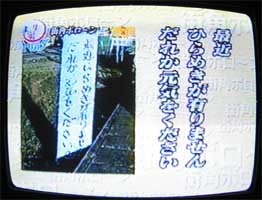 最近
ひらめきが有りません
だれか元気をください
最近ひらめきが有りません
だれか元気をください。